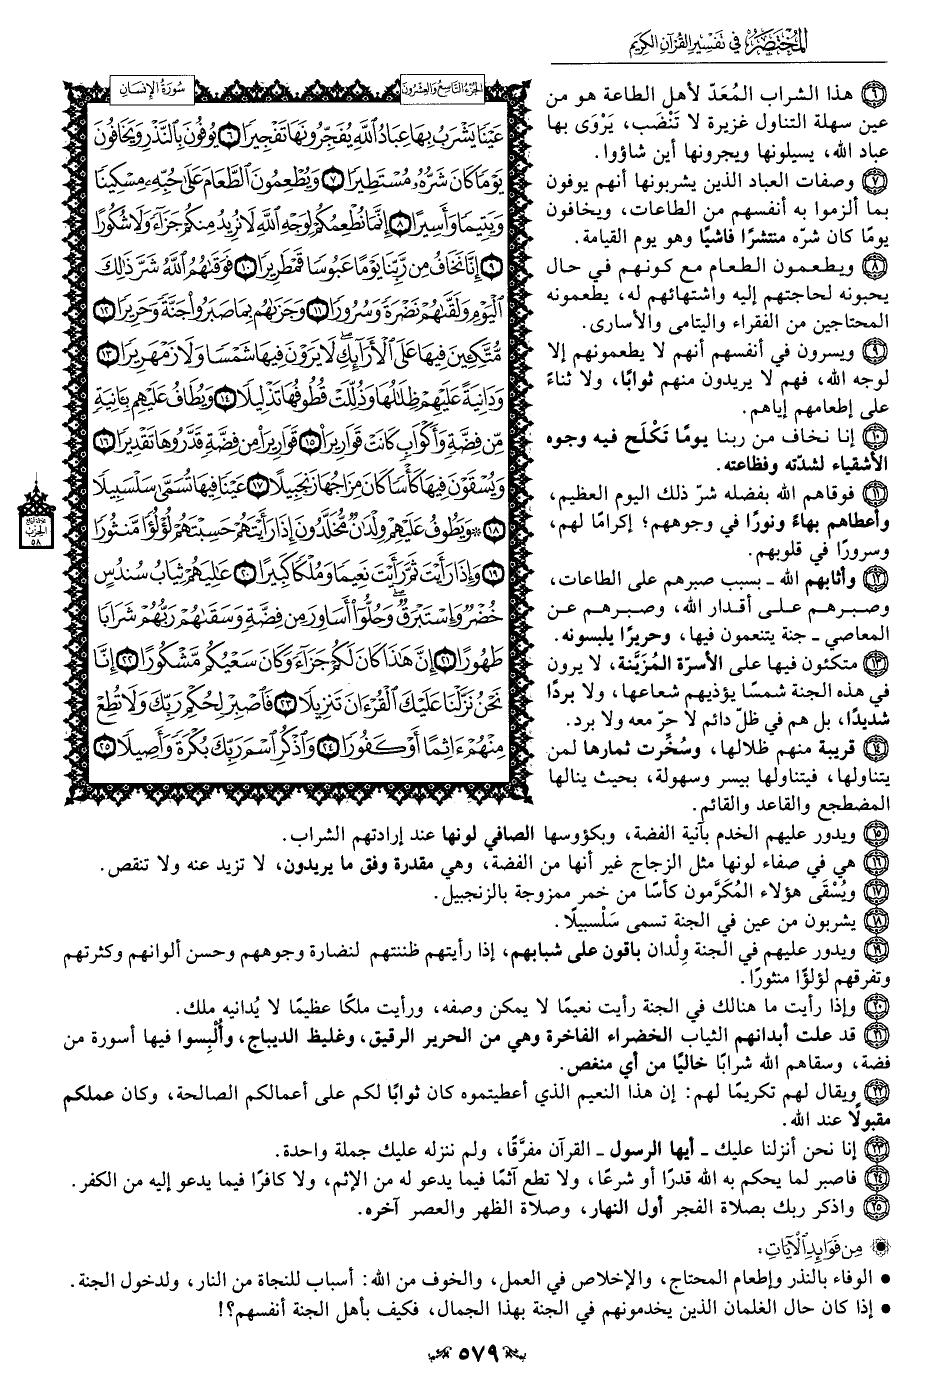 المختصر في تفسير القرآن الكريم
الجزء التاسع والعشرون
سورة الإنسان
عَيْنًا يَشْرَبُ بِهَا عِبَادُ اللَّهِ يُفَجِّرُونَهَا تَفْجِيرًا ٦ يُوفُونَ بِالنَّذْرِ وَيَخَافُونَ
يَوْمًا كَانَ شَرُّهُ مُسْتَطِيرًا ٧ وَيُطْعِمُونَ الطَّعَامَ عَلَىٰ حُبِّهِ مِسْكِينًا
وَيَتِيمًا وَأَسِيرًا ٨ إِنَّمَا نُطْعِمُكُمْ لِوَجْهِ اللَّهِ لَا نُرِيدُ مِنكُمْ جَزَاءً وَلَا شُكُورًا
٩ إِنَّا نَخَافُ مِن رَّبِّنَا يَوْمًا عَبُوسًا قَمْطَرِيرًا ١٠ فَوَقَاهُمُ اللَّهُ شَرَّ ذَٰلِكَ
الْيَوْمِ وَلَقَّاهُمْ نَضْرَةً وَسُرُورًا ١١ وَجَزَاهُم بِمَا صَبَرُوا جَنَّةً وَحَرِيرًا ١٢
مُّتَّكِئِينَ فِيهَا عَلَى الْأَرَائِكِ ۖ لَا يَرَوْنَ فِيهَا شَمْسًا وَلَا زَمْهَرِيرًا ١٣
وَدَانِيَةً عَلَيْهِمْ ظِلَالُهَا وَذُلِّلَتْ قُطُوفُهَا تَذْلِيلًا ١٤ وَيُطَافُ عَلَيْهِم بِآنِيَةٍ
مِّن فِضَّةٍ وَأَكْوَابٍ كَانَتْ قَوَارِيرَا ١٥ قَوَارِيرَا مِن فِضَّةٍ قَدَّرُوهَا تَقْدِيرًا ١٦
وَيُسْقَوْنَ فِيهَا كَأْسًا كَانَ مِزَاجُهَا زَنجَبِيلًا ١٧ عَيْنًا فِيهَا تُسَمَّىٰ سَلْسَبِيلًا
١٨ ۞ وَيَطُوفُ عَلَيْهِمْ وِلْدَانٌ مُّخَلَّدُونَ إِذَا رَأَيْتَهُمْ حَسِبْتَهُمْ لُؤْلُؤًا مَّنثُورًا
١٩ وَإِذَا رَأَيْتَ ثَمَّ رَأَيْتَ نَعِيمًا وَمُلْكًا كَبِيرًا ٢٠ عَالِيَهُمْ ثِيَابُ سُندُسٍ
خُضْرٌ وَإِسْتَبْرَقٌ ۖ وَحُلُّوا أَسَاوِرَ مِن فِضَّةٍ وَسَقَاهُمْ رَبُّهُمْ شَرَابًا
طَهُورًا ٢١ إِنَّ هَٰذَا كَانَ لَكُمْ جَزَاءً وَكَانَ سَعْيُكُم مَّشْكُورًا ٢٢ إِنَّا
نَحْنُ نَزَّلْنَا عَلَيْكَ الْقُرْآنَ تَنزِيلًا ٢٣ فَاصْبِرْ لِحُكْمِ رَبِّكَ وَلَا تُطِعْ
مِنْهُمْ آثِمًا أَوْ كَفُورًا ٢٤ وَاذْكُرِ اسْمَ رَبِّكَ بُكْرَةً وَأَصِيلًا ٢٥
الحزب
٥٨
٦ هذا الشراب المُعَدّ لأهل الطاعة هو من
عين سهلة التناول غزيرة لا تَنْضَب، يَرْوَى بها
عباد الله، يسيلونها ويجرونها أين شاؤوا.
٧ وصفات العباد الذين يشربونها أنهم يوفون
بما ألزموا به أنفسهم من الطاعات، ويخافون
يومًا كان شره منتشرًا فاشيًا وهو يوم القيامة.
٨ ويطعمون الطعام مع كونهم في حال
يحبونه لحاجتهم إليه واشتهائهم له، يطعمونه
المحتاجين من الفقراء واليتامى والأسارى.
٩ ويسرون في أنفسهم أنهم لا يطعمونهم إلا
لوجه الله، فهم لا يريدون منهم ثوابًا، ولا ثناءً
على إطعامهم إياهم.
١٠ إنا نخاف من ربنا يومًا تَكْلَح فيه وجوه
الأشقياء لشدّته وفظاعته.
١١ فوقاهم الله بفضله شرّ ذلك اليوم العظيم،
وأعطاهم بهاءً ونورًا في وجوههم؛ إكرامًا لهم،
وسرورًا في قلوبهم.
١٢ وأثابهم الله ـ بسبب صبرهم على الطاعات،
وصبرهم على أقدار الله، وصبرهم عن
المعاصي ـ جنة يتنعمون فيها، وحريرًا يلبسونه.
١٣ متكئون فيها على الأسرّة المُزَيَّنة، لا يرون
في هذه الجنة شمسًا يؤذيهم شعاعها، ولا بردًا
شديدًا، بل هم في ظلّ دائم لا حرّ معه ولا برد.
١٤ قريبة منهم ظلالها، وسُخِّرت ثمارها لمن
يتناولها، فيتناولها بيسر وسهولة، بحيث ينالها
المضطجع والقاعد والقائم.
١٥ ويدور عليهم الخدم بآنية الفضة، وبكؤوسها الصافي لونها عند إرادتهم الشراب.
١٦ هي في صفاء لونها مثل الزجاج غير أنها من الفضة، وهي مقدرة وفق ما يريدون، لا تزيد عنه ولا تنقص.
١٧ ويُسْقَى هؤلاء المُكَرَّمون كأسًا من خمر ممزوجة بالزنجبيل.
١٨ يشربون من عين في الجنة تسمى سَلْسبيلًا.
١٩ ويدور عليهم في الجنة وِلْدان باقون على شبابهم، إذا رأيتهم ظننتهم لنضارة وجوههم وحسن ألوانهم وكثرتهم
وتفرقهم لؤلؤًا منثورًا.
٢٠ وإذا رأيت ما هنالك في الجنة رأيت نعيمًا لا يمكن وصفه، ورأيت ملكًا عظيمًا لا يُدانيه ملك.
٢١ قد علت أبدانهم الثياب الخضراء الفاخرة وهي من الحرير الرقيق، وغليظ الديباج، وأُلْبِسوا فيها أسورة من
فضة، وسقاهم الله شرابًا خاليًا من أي منغص.
٢٢ ويقال لهم تكريمًا لهم: إن هذا النعيم الذي أعطيتموه كان ثوابًا لكم على أعمالكم الصالحة، وكان عملكم
مقبولًا عند الله.
٢٣ إنا نحن أنزلنا عليك ـ أيها الرسول ـ القرآن مفرَّقًا، ولم ننزله عليك جملة واحدة.
٢٤ فاصبر لما يحكم به الله قدرًا أو شرعًا، ولا تطع آثمًا فيما يدعو له من الإثم، ولا كافرًا فيما يدعو إليه من الكفر.
٢٥ واذكر ربك بصلاة الفجر أول النهار، وصلاة الظهر والعصر آخره.
من فوائد الآيات:
• الوفاء بالنذر وإطعام المحتاج، والإخلاص في العمل، والخوف من الله: أسباب للنجاة من النار، ولدخول الجنة.
• إذا كان حال الغلمان الذين يخدمونهم في الجنة بهذا الجمال، فكيف بأهل الجنة أنفسهم؟!
٥٧٩